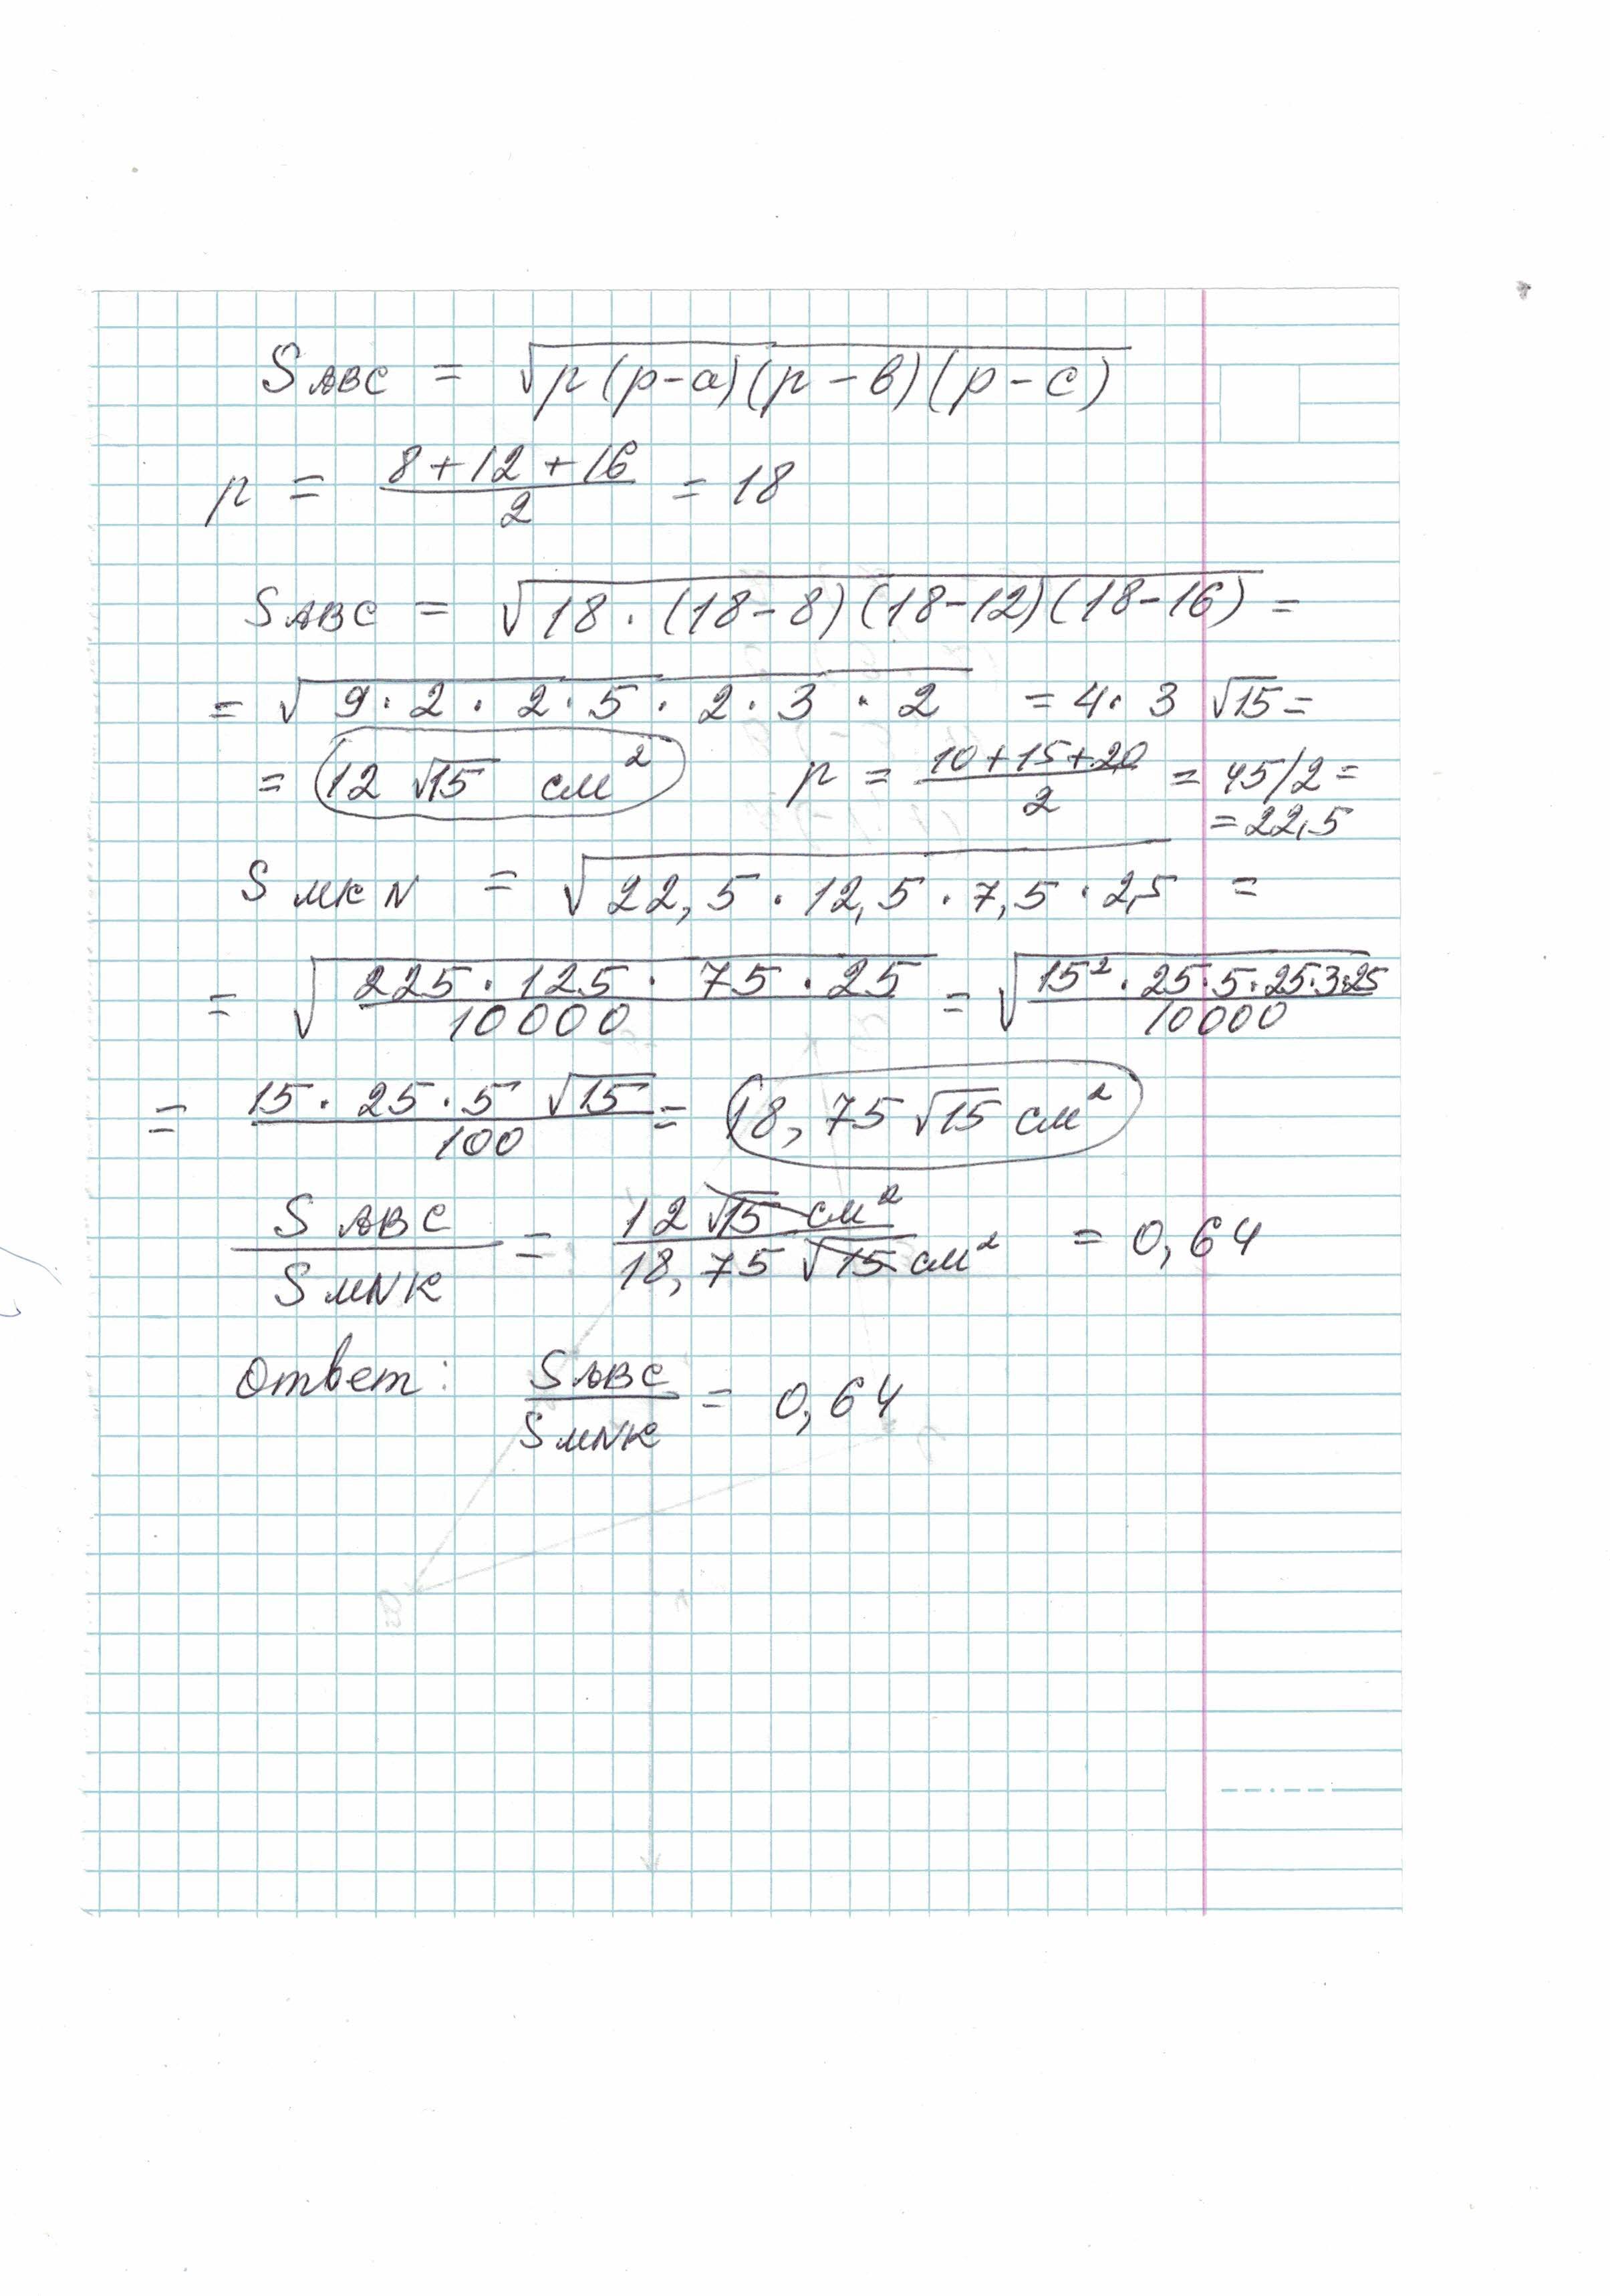 S ABC = √p(p-a)(p-b)(p-c)
p = (8+12+16)/2 = 18
S ABC = √18·(18-8)(18-12)(18-16) =
= √9·2·2·5·2·3·2 = 4·3 √15 =
= 12 √15 см² p = (10+15+20)/2 = 45/2 =
= 22,5
S MKN = √22,5·12,5·7,5·2,5 =
= √(225·125·75·25)/10000 = √(15²·25·5·25·3·25)/10000
= (15·25·5 √15)/100 = 18,75 √15 см²
S ABC / S MNK = 12 √15 см² / 18,75 √15 см² = 0,64
Ответ: S ABC / S MNK = 0,64